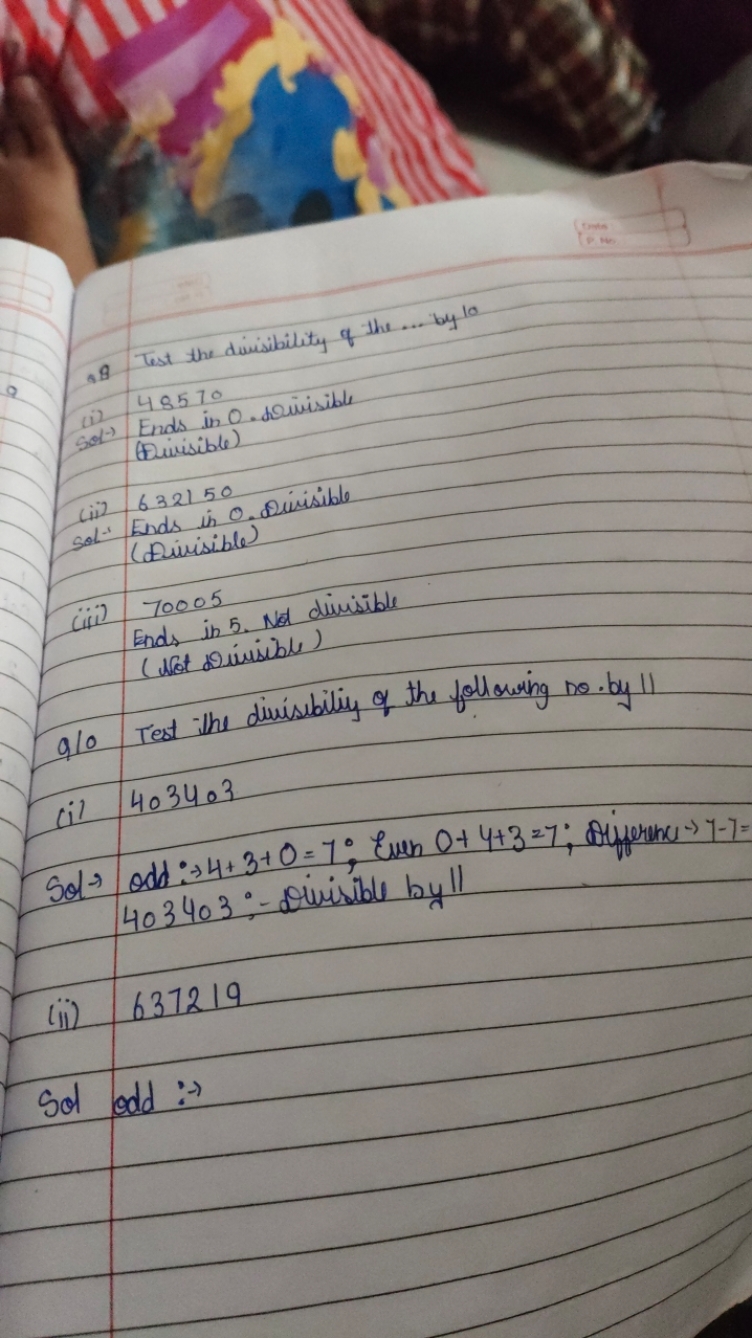 Date
P. No.
Q9 Test the divisibility of the ... by 10
(i) 48570
Sol→ Ends in 0. Divisible
(Divisible)
(ii) 632150
Sol Ends in 0. Divisible
(Divisible)
(iii) 70005
Ends in 5. Not divisible
(Not Divisible)
Q10 Test the divisibiliy of the following no. by 11
(i) 403403
Sol→ odd :→ 4+3+0=7; Even 0+4+3=7; Difference → 7-7=
403403 :- Divisible by 11
(ii) 637219
Sol odd :→